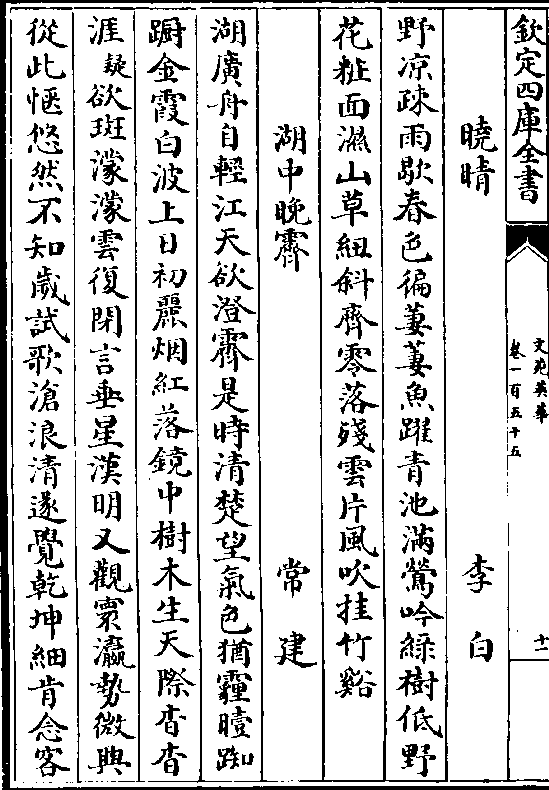 欽定四庫全書
文苑英華
卷一百五十五
十一
曉晴 李白
野凉疎雨歇春色徧萋萋魚躍青池滿鶯吟綠樹低野
花粧面濕山草紐斜齊零落殘雲片風吹挂竹谿
湖中晚霽 常建
湖廣舟自輕江天欲澄霽是時清楚望氣色猶霾曀踟
蹰金霞白波上日初麗烟紅落鏡中樹木生天際杳杳
涯疑欲斑濛濛雲復閉言垂星漢明又觀寰瀛勢微興
從此愜悠然不知歲試歌滄浪清遂覺乾坤細肯念客